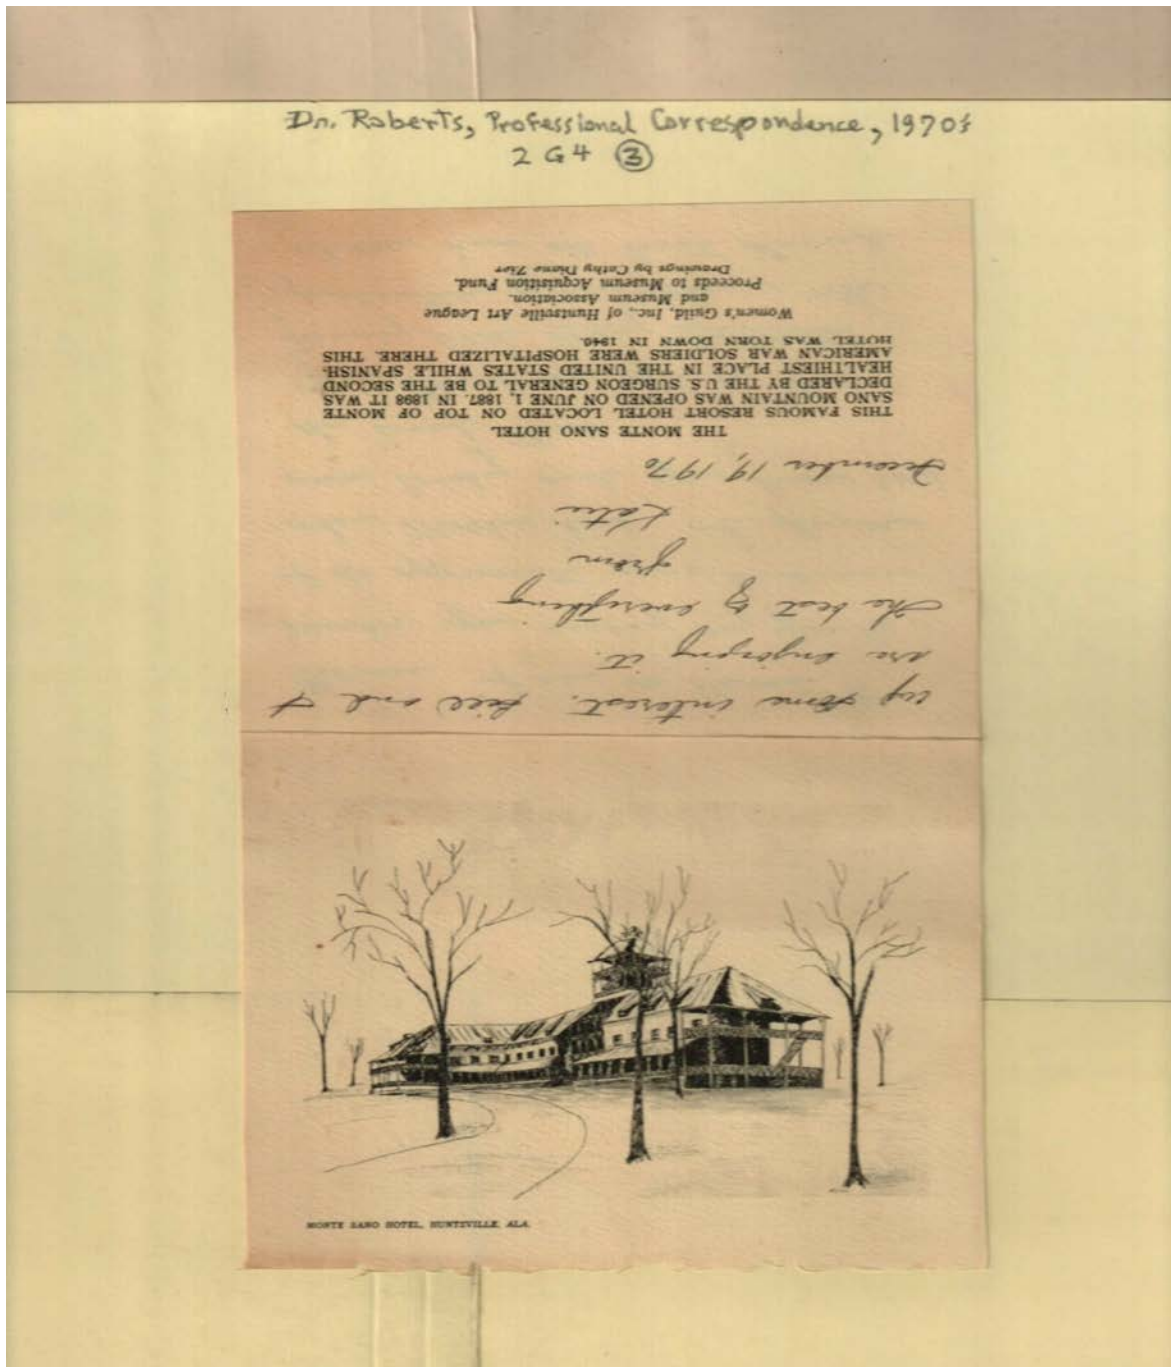 Dr. Roberts, Professional Correspondence, 1970s
2 G 4 ③
up some interest. Bill and I
are enjoying it.
The best of everything
from
Katie
December 19, 1970
THE MONTE SANO HOTEL
THIS FAMOUS RESORT HOTEL LOCATED ON TOP OF MONTE
SANO MOUNTAIN WAS OPENED ON JUNE 1, 1887. IN 1898 IT WAS
DECLARED BY THE U.S. SURGEON GENERAL TO BE THE SECOND
HEALTHIEST PLACE IN THE UNITED STATES WHILE SPANISH-
AMERICAN WAR SOLDIERS WERE HOSPITALIZED THERE. THIS
HOTEL WAS TORN DOWN IN 1946.
Women's Guild, Inc., of Huntsville Art League
and Museum Association.
Proceeds to Museum Acquisition Fund.
Drawings by Cathy Diane Zier
MONTE SANO HOTEL, HUNTSVILLE, ALA.